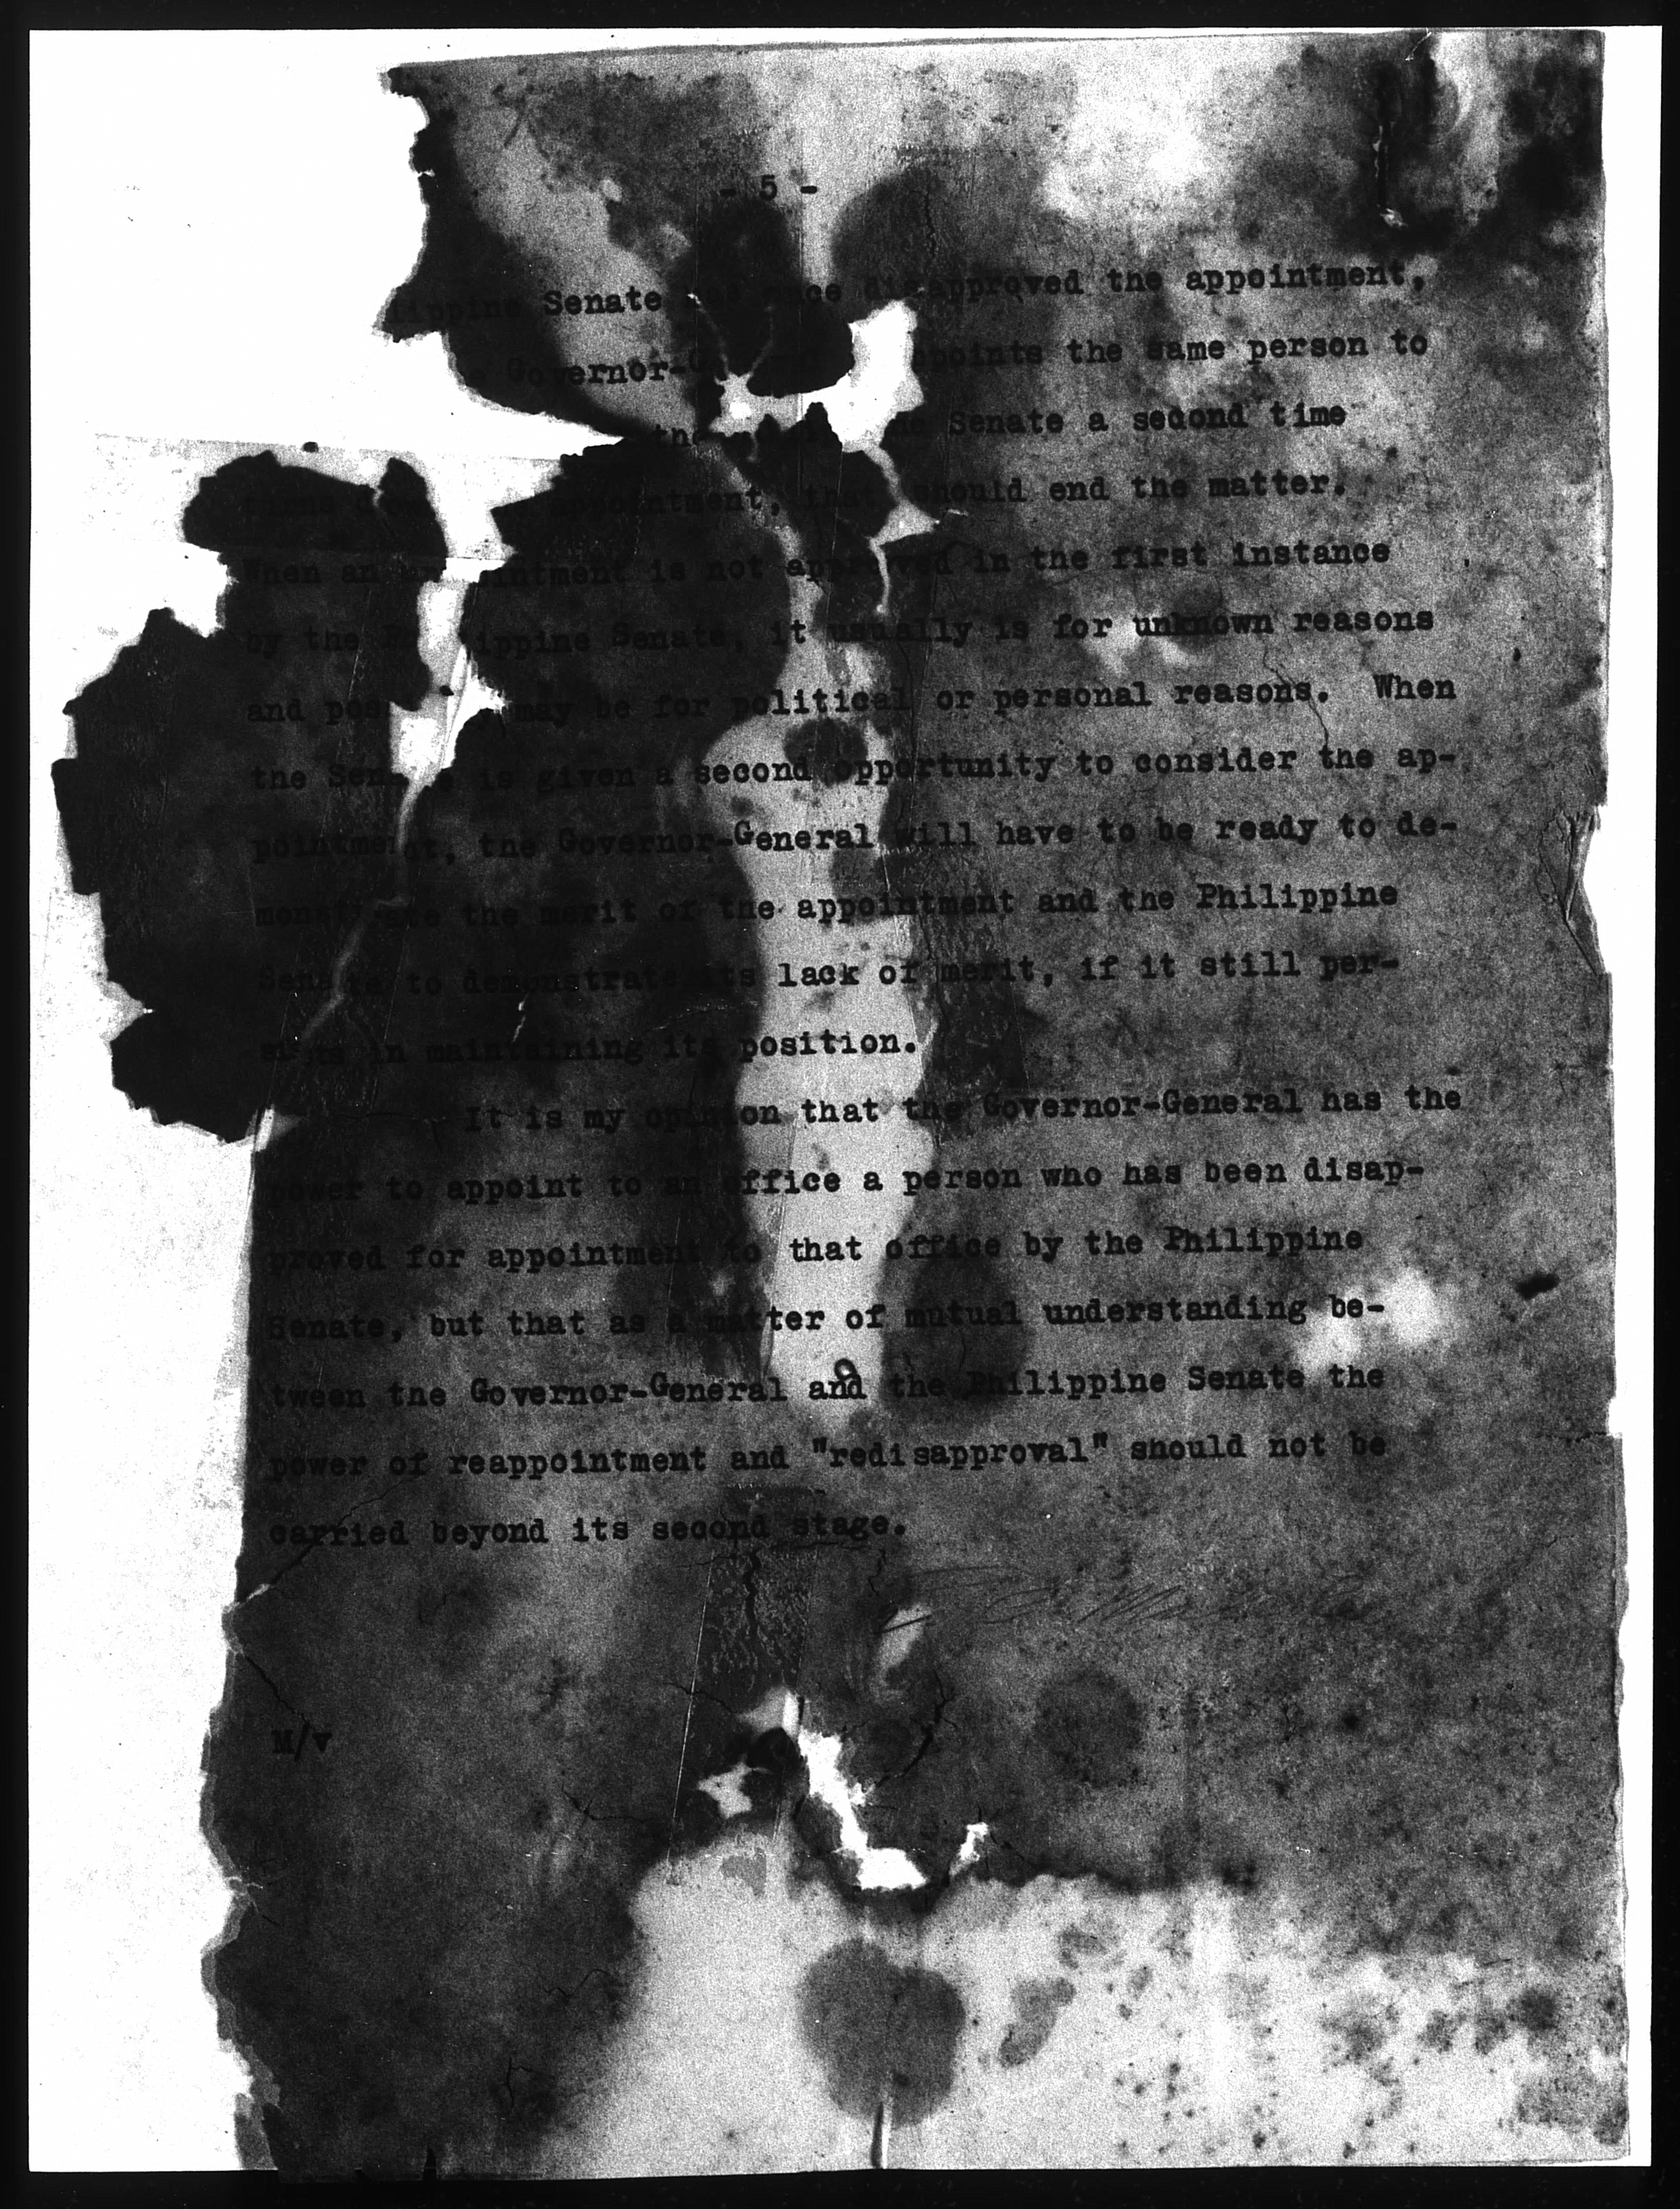 - 5 -
Senate once disapproved the appointment,
Governor- the same person to
Senate a second time
appointment, that should end the matter.
When an is not approved in the first instance
by the Senate, it usually is for unknown reasons
and may be for political or personal reasons. When
the Senate is given a second opportunity to consider the ap-
pointment, the Governor-General will have to be ready to de-
monstrate the merit of the appointment and the Philippine
Senate to demonstrate its lack of merit, if it still per-
sists in maintaining its position.
It is my opinion that the Governor-General has the
power to appoint to an office a person who has been disap-
proved for appointment to that office by the Philippine
Senate, but that as a matter of mutual understanding be-
tween the Governor-General and the Philippine Senate the
power of reappointment and "redisapproval" should not be
carried beyond its second stage.
M/v